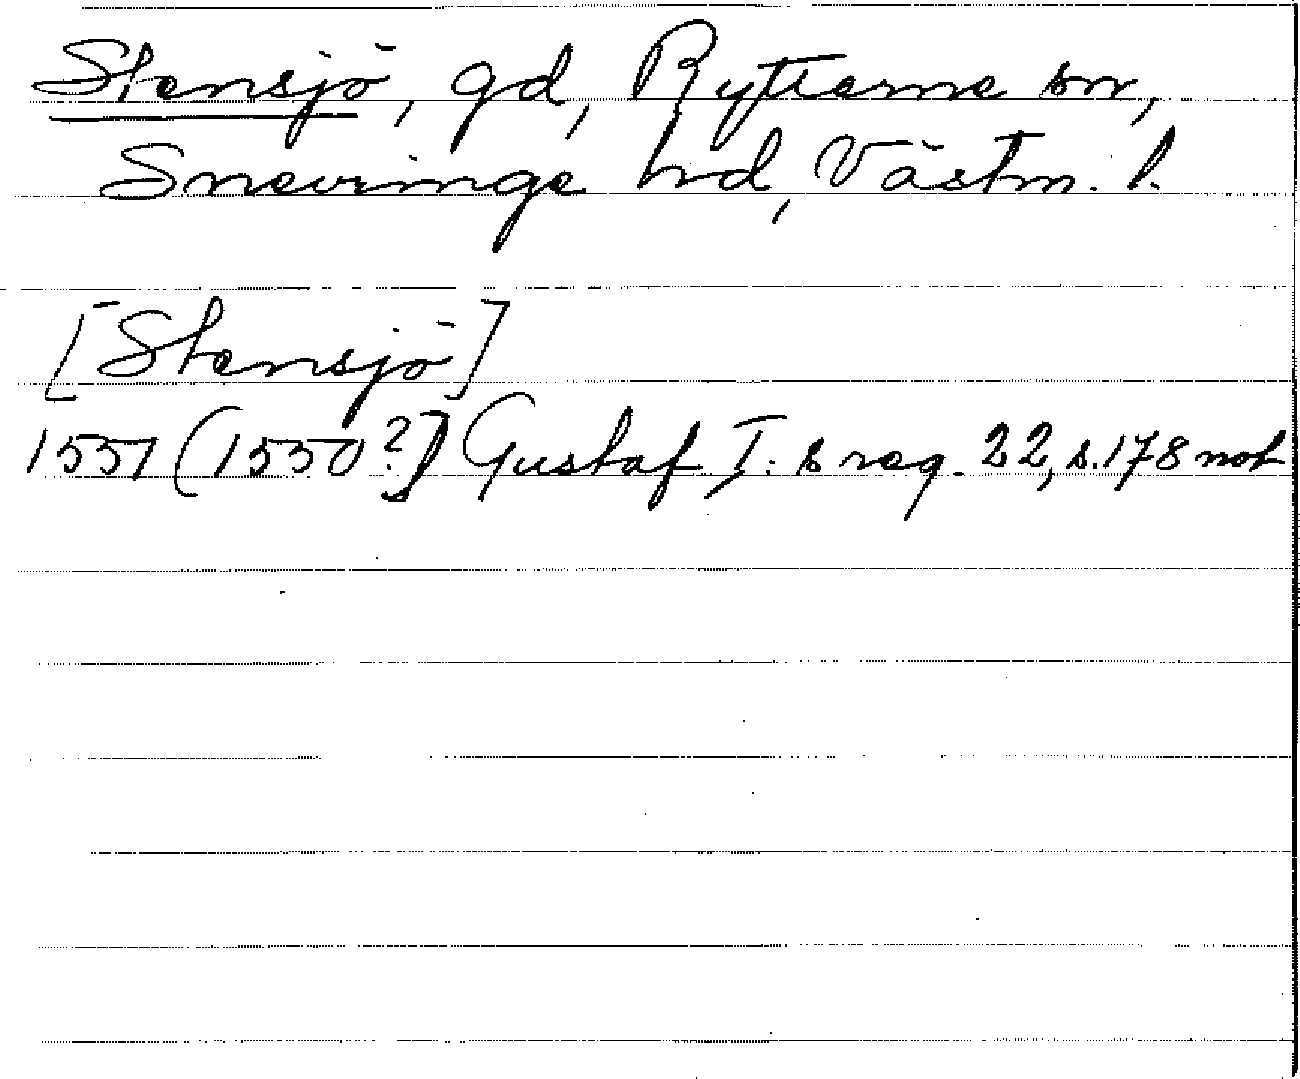 Stensjö, gd, Rytterne sn,
Snevringe hd, Västm. l.
[Stensjö]
1551 (1550?) Gustaf I:s reg. 22, s. 178 not